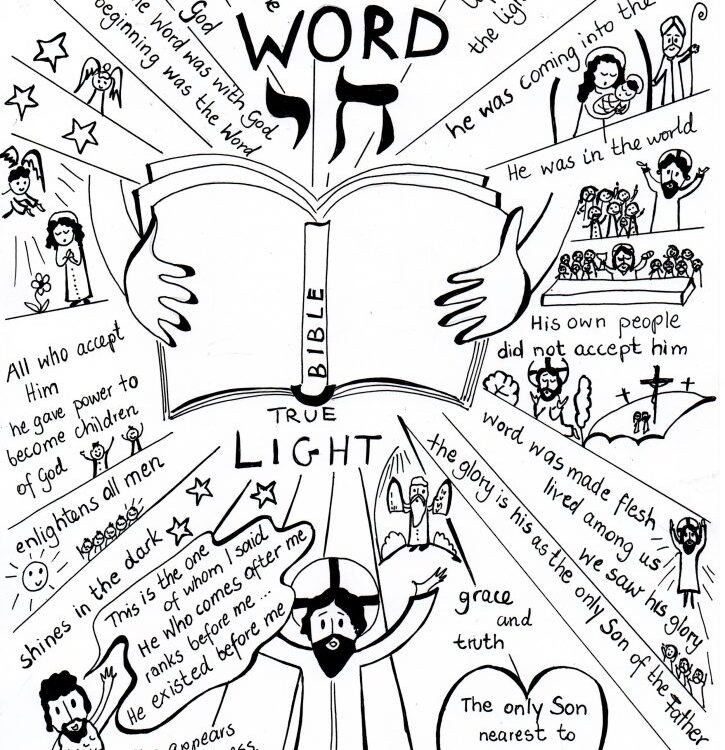 God
the Word was with God
beginning was the Word
WORD
חי
the light
he was coming into the
He was in the world
His own people
did not accept him
BIBLE
TRUE
LIGHT
All who accept
Him
he gave power to
become children
of God
enlightens all men
shines in the dark
This is the one
of whom I said
He who comes after me
ranks before me ...
He existed before me
appears
word was made flesh
lived among us
we saw his glory
the glory is his as the only Son of the Father
grace
and
truth
The only Son
nearest to